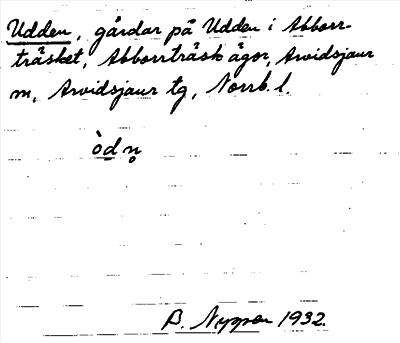 Udden, gårdar på Udden i Abborr-
träsket, Abborrträsk ägor, Arvidsjaur
m, Arvidsjaur tg, Norrb. l.
òdn̥
B. Nyman 1932.